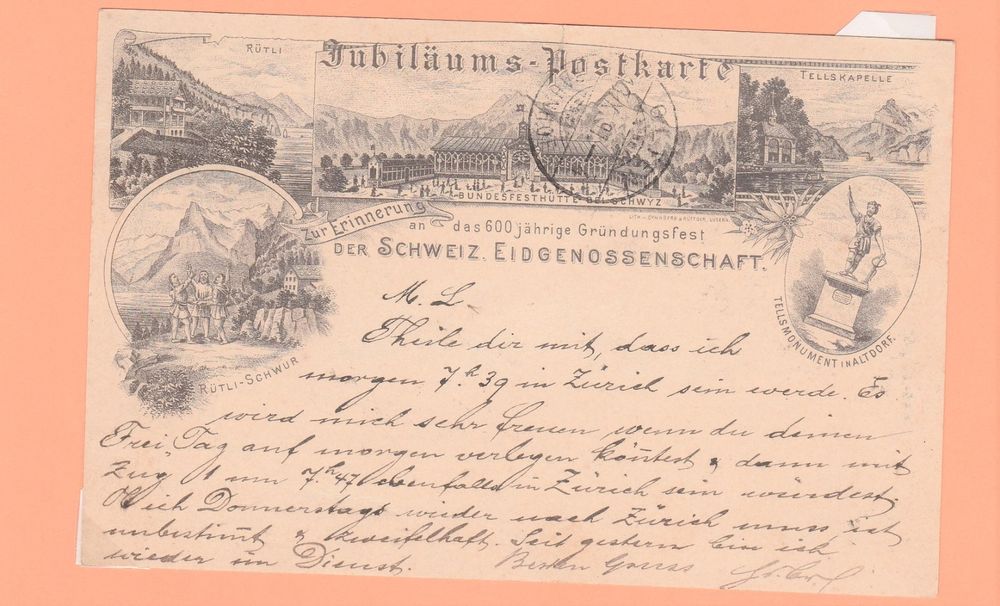 RÜTLI
Jubiläums-Postkarte
TELLSKAPELLE
BUNDESFESTHÜTTE BEI SCHWYZ
Zur Erinnerung
an das 600 jährige Gründungsfest
DER SCHWEIZ. EIDGENOSSENSCHAFT.
RÜTLI-SCHWUR
TELLSMONUMENT IN ALTDORF.
M. L
Theile dir mit, dass ich
morgen 7.h 39 in Zürich sein werde. Es
wird mich sehr freuen wenn du deinen
Frei-Tag auf morgen verlegen könntest & dann mit
Zug um 7.h 47 ebenfalls in Zürich sein würdest.
Ob ich Donnerstags wieder nach Zürich muss, ist
unbestimmt & zweifelhaft. Seit gestern bin ich
wieder im Dienst. Besten Gruss